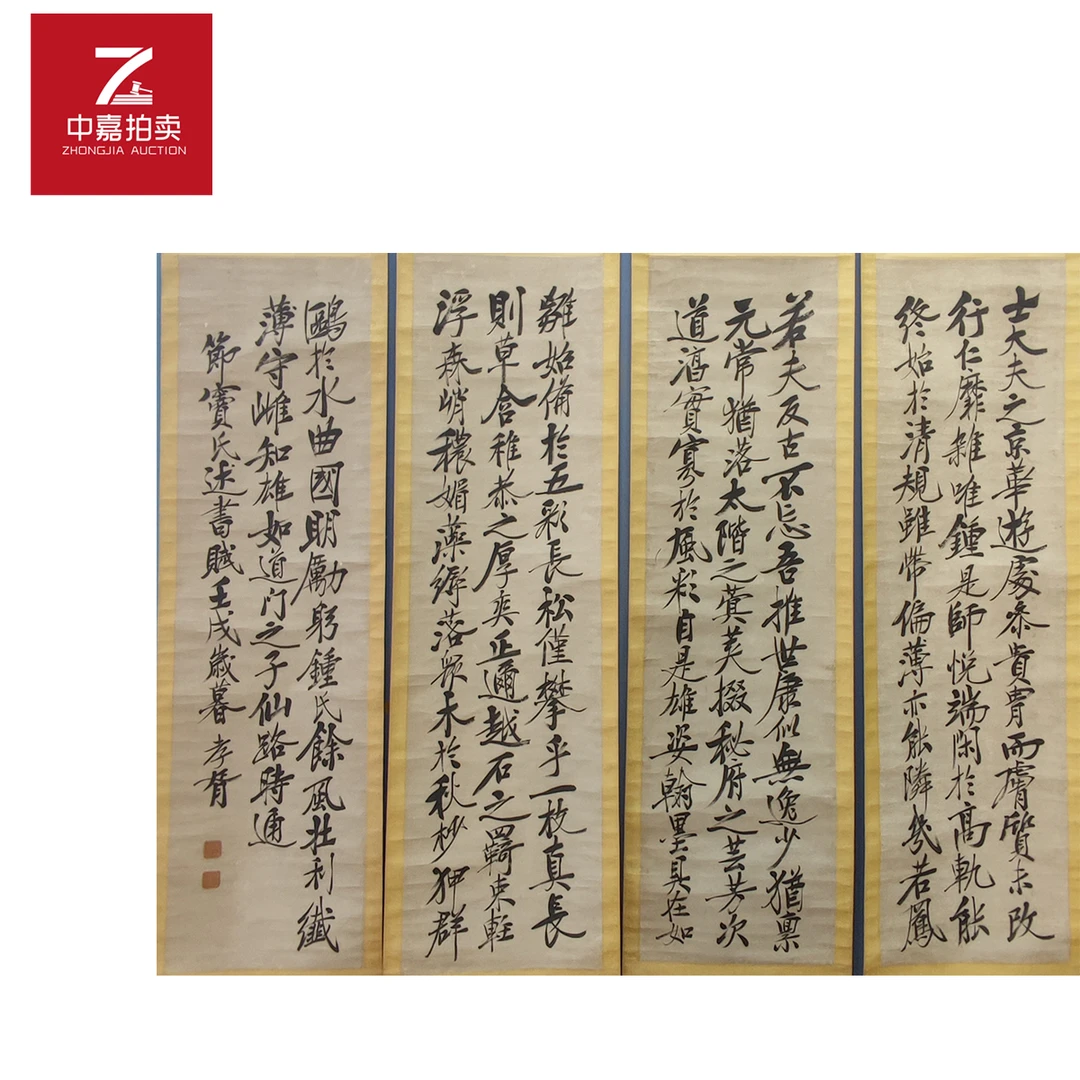 中嘉拍卖
ZHONGJIA AUCTION
士大夫之京華遊處忝貴胄而膚質未改
行仁靡雜唯鍾是師悦端閑於高軌能
終始於清規雖帶偏薄亦能隣幾若鳳
若夫反古不忘吾推世康似無逸少猶稟
元常猶落太階之蓂荚掇秘府之芸芳次
道滔實寡於風彩自是雄姿翰墨具在如
雛始備於五彩長松僅攀乎一枝真長
則草含稚恭之厚爽正邇越石之羈束軒
浮森峭穠媚藥綷落衆木於秋杪狎群
鷗於水曲國明勵躬鍾氏餘風壯利纖
薄守雌知雄如道門之子仙路時通
節竇氏述書賦壬戌歲暮 孝胥